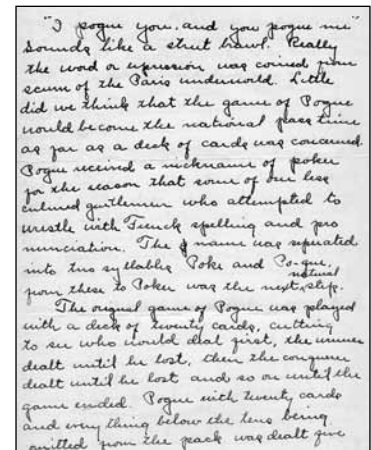 "I pogue you, and you pogue me"
Sounds like a street brawl. Really
the word or expression was coined from
scum of the Paris underworld. Little
did we think that the game of Pogue
would become the national pass time
as far as a deck of cards was concerned.
Pogue received a nickname of poker
for the reason that some of our less
cultured gentlemen who attempted to
wrestle with French spelling and pro
nunciation. The name was seperated
into two syllables Poke and Po-gue,
natural
from these to Poker was the next step.
The orignal game of Pogue was played
with a deck of twenty cards, cutting
to see who would deal first, the winner
dealt until he lost, then the conquerer
dealt until he lost and so on until the
game ended. Pogue with twenty cards
and every thing below the tens being
omitted from the pack was dealt five